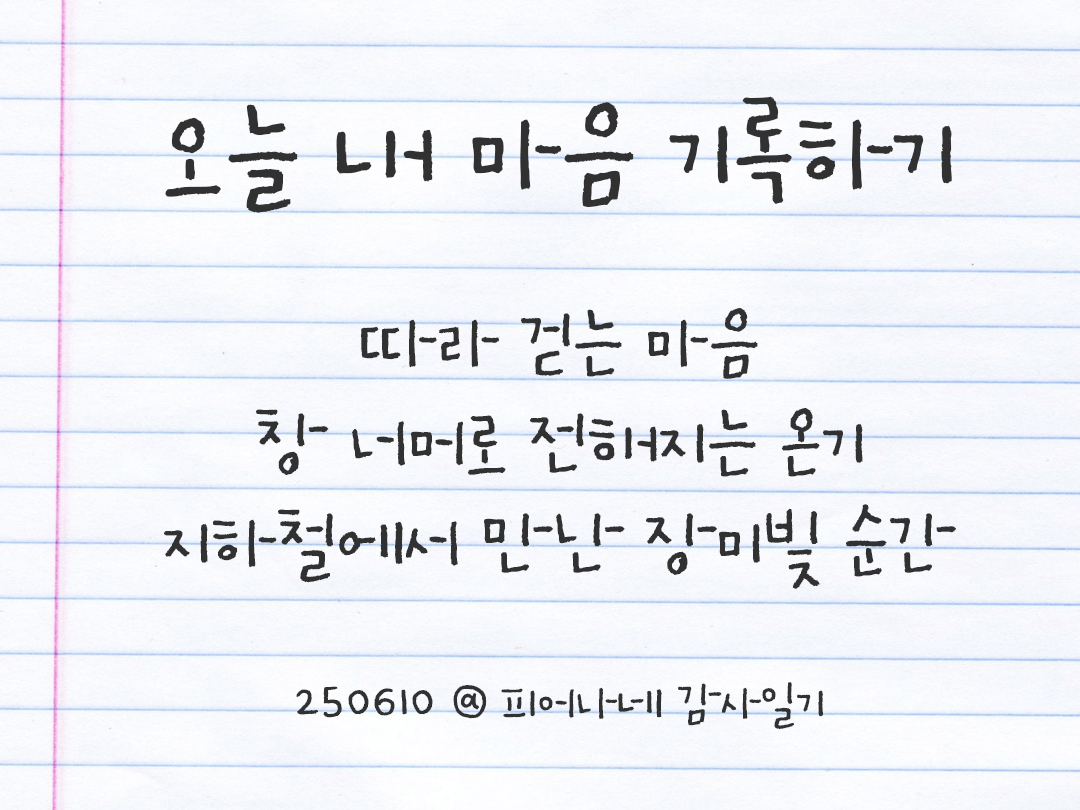 오늘 내 마음 기록하기
따라 걷는 마음
창 너머로 전해지는 온기
지하철에서 만난 장미빛 순간
250610 @ 피어나네 감사일기